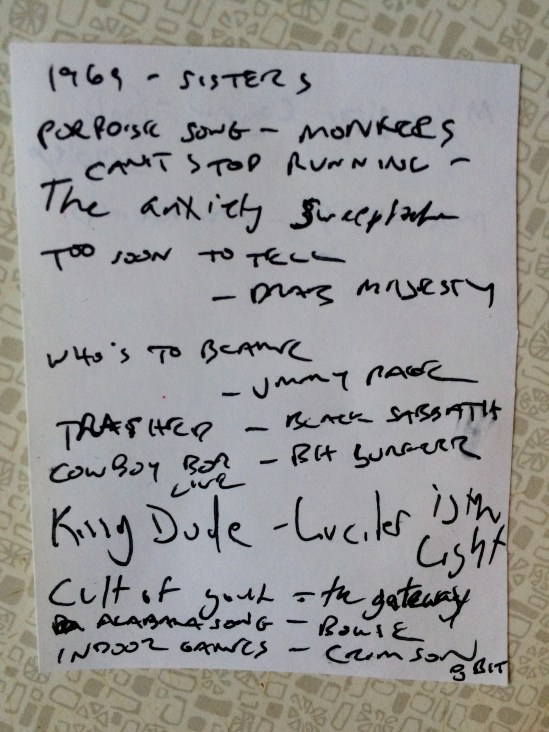 1969 - SISTERS
PORPOISE SONG - MONKEES
CAN'T STOP RUNNING -
The anxiety
TOO SOON TO TELL
- DRAB MAJESTY
WHO'S TO BLAME
- JIMMY PAGE
TRASHED - BLACK SABBATH
COWBOY BOB - BH SURFER
LIVE
King Dude - Lucifer is the
Light
Cult of youth - the gateway
ALABAMA SONG - BOWIE
INDOOR GAMES - CRIMSON
8 BIT